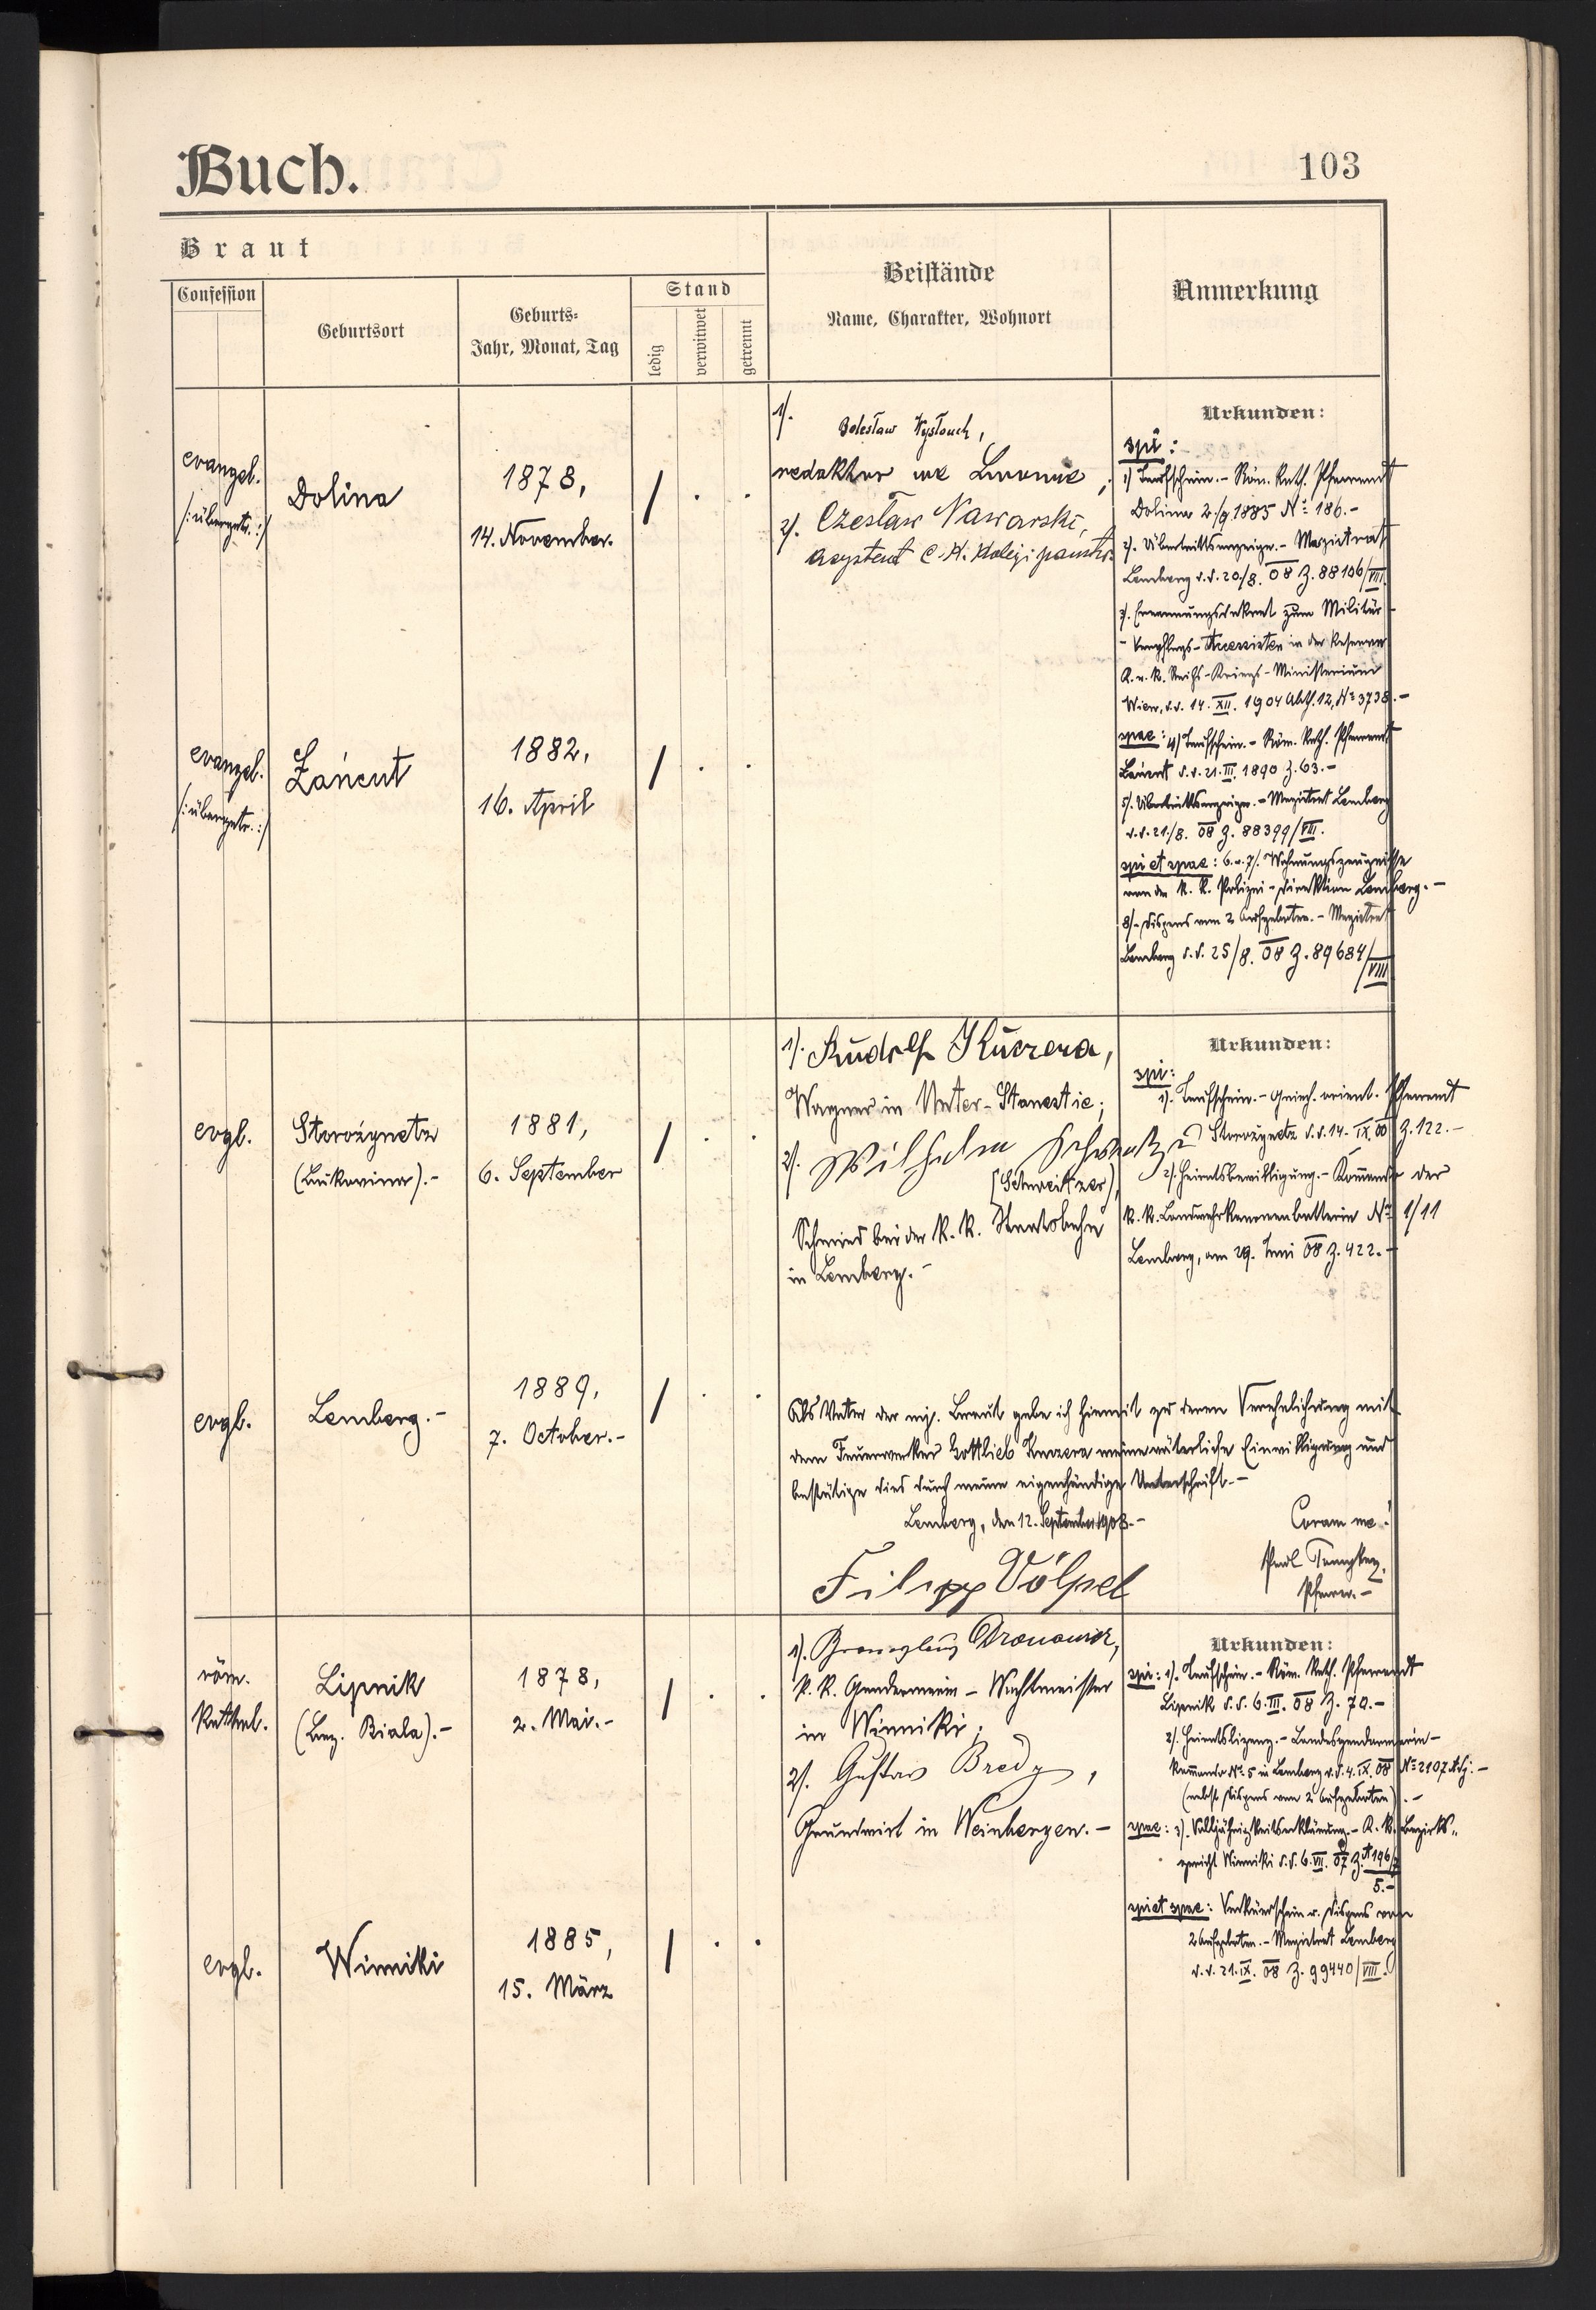 Buch.
103
Braut
Confession
Geburtsort
Geburts-
Jahr, Monat, Tag
Stand
ledig
verwitwet
getrennt
Beistände
Name, Charakter, Wohnort
Anmerkung
evangel.
/:übergetr.:/
Dolina
1878,
14. November.
1/.
Bolesław Wysłouch,
redaktor we Lwowie,
2/. Czesław Nawarski,
asystent c. k. kolei państw.
Urkunden:
spi:
1) Taufschein.- Röm. kath. Pfarramt
Dolina 2./9. 1885 No 186.-
2). Übertrittsanzeige.- Magistrat
Lemberg d.d. 20./8. 08 Z. 88106/VIII.
3). Ernennungsdekret zum Militär-
- Verpflegs-Accessisten in der Reserve
K. u. K. Reichs-Kriegs-Ministerium
Wien, d.d. 14. XII. 1904 Abth. 12, No 3738.-
evangel.
/:übergetr.:/
Łańcut
1882,
16. April
spae: 4) Taufschein.- Röm. kath. Pfarramt
Łańcut d.d. 21. III. 1890 Z. 63.-
5/. Übertrittsanzeige.- Magistrat Lemberg
d.d. 21./8. 08 Z. 88399/VIII.
spi et spae: 6. u. 7/. Wohnungszeugnisse
von der K. K. Polizei-Direktion Lemberg.-
8/. Dispens vom 2 Aufgeboten.- Magistrat
Lemberg d.d. 25/8. 08 Z. 89684/VIII
evgl.
Storożynetz
(Bukovina).-
1881,
6. September
1/. Rudolf Kuczera,
Wagner in Unter-Stanestie;
2/. Wilhelm
(Schweitzer),
Schmied bei der K. K. Staatsbahn
in Lemberg.-
Urkunden:
spi:
1). Taufschein.- Griech. orient. Pfarramt
Storożynetz d.d. 14. IX. 00 Z. 122.-
2/. Heiratsbewilligung.- Kommando der
K. K. Landwehrkanonenbatterie No 1/11
Lemberg, am 29. Juni 08 Z. 422.-
evgl.
Lemberg.-
1889,
7. October.-
Als Vater der mj. Braut gebe ich hiemit zu deren Verehelichung mit
dem Feuerwerker Gottlieb Kuczera meine väterliche Einwilligung und
bestätige dies durch meine eigenhändige Unterschrift.-
Lemberg, den 12. September 1908.-
Coram me:
Filipp Völpel
Pfarrer.-
röm.
kathol.
Lipnik
(Bez. Biala).-
1878,
2. Mai.-
1/.
K. K. Gendarmerie-Wachtmeister
in Winniki;
2/. Gustav Bredy,
Grundwirt in Weinbergen.-
Urkunden:
spi: 1). Taufschein.- Röm. kath. Pfarramt
Lipnik d.d. 6. III. 08 Z. 70.-
2/. Heiratslizenz.- Landesgendarmerie-
kommando No 5 in Lemberg d.d. 4. IX. 08 No 2107 Adj.-
(nebst Dispens vom 2 Aufgeboten).-
spae: 3). Volljährigkeitserklärung.- K. K. Bezirks-
gericht Winniki d.d. 6. VII. 07 Z.
5.-
evgl.
Winniki
1885,
15. März
spi et spae: Verkündschein u. Dispens vom
2 Aufgeboten.- Magistrat Lemberg
d.d. 21. IX. 08 Z. 99440/VIII.